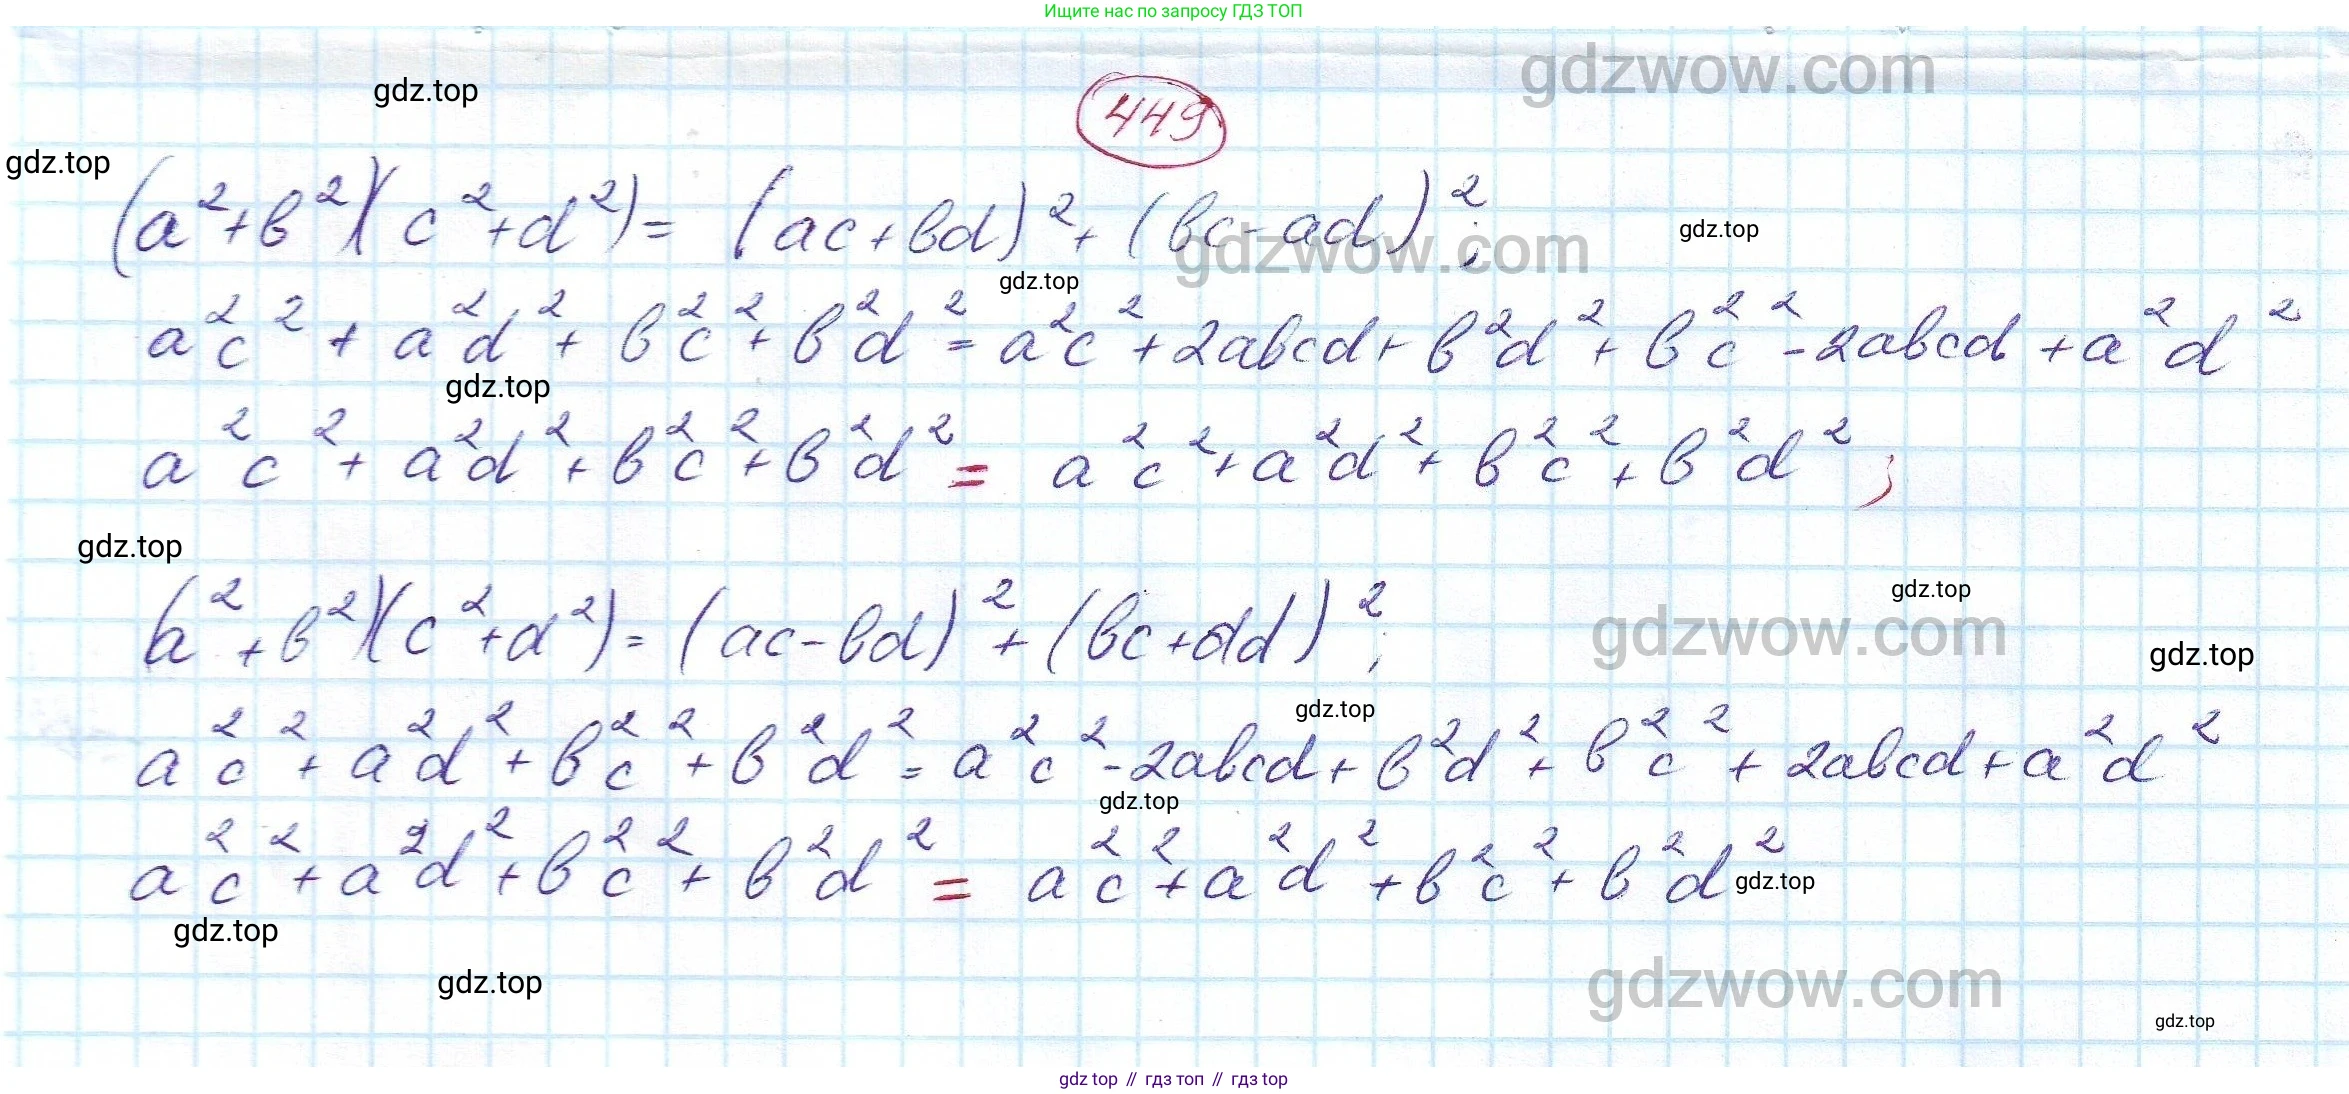 Ищите нас по запросу ГДЗ ТОП
gdzwow.com
gdz.top
449
gdz.top
(a²+b²)(c²+d²)= (ac+bd)²+(bc-ad)²;
gdz.top
gdzwow.com
gdz.top
a²c²+a²d²+b²c²+b²d²=a²c²+2abcd+b²d²+b²c²-2abcd+a²d²
gdz.top
a²c²+a²d²+b²c²+b²d² = a²c²+a²d²+b²c²+b²d²;
gdz.top
gdz.top
(a²+b²)(c²+d²)=(ac-bd)²+(bc+ad)²;
gdzwow.com
gdz.top
gdz.top
a²c²+a²d²+b²c²+b²d²=a²c²-2abcd+b²d²+b²c²+2abcd+a²d²
gdz.top
a²c²+a²d²+b²c²+b²d² = a²c²+a²d²+b²c²+b²d²
gdz.top
gdz.top
gdz.top
gdzwow.com
gdz.top
gdz top // гдз топ // гдз top